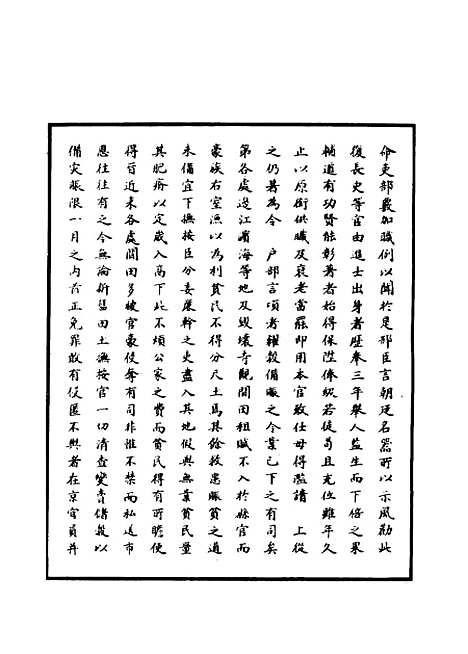 命吏部嚴加職例以聞於是部臣言朝廷名器所以示風勸此
後長史等官由進士出身者歷奉三年舉人監生而下倍之果
輔道有功賢能彰著者始得保陞俸級若徒苟且充位雖年久
止以原銜供職及衰老當罷即用本官致仕毋得濫請　上從
之仍著為令　戶部言頃者糴穀備賑之令業已下之有司矣
第各處邊江濵海等地及毀壞寺觀閒田租賦不入於縣官而
豪族右室漁以為利貧民不得分尺土焉其餘救患賑貧之道
未備宜下撫按臣分委廉幹之吏盡入其地假與無業貧民量
其肥瘠以定歲入高下此不煩公家之費而貧民得有所贍便
得旨近來各處閒田多被官豪侵奪有司非惟不禁而私送市
恩往往有之今無論新舊田土撫按官一切清查變賣儲穀以
備灾賑限一月之内首正免罪敢有侵匿不與者在京官員并